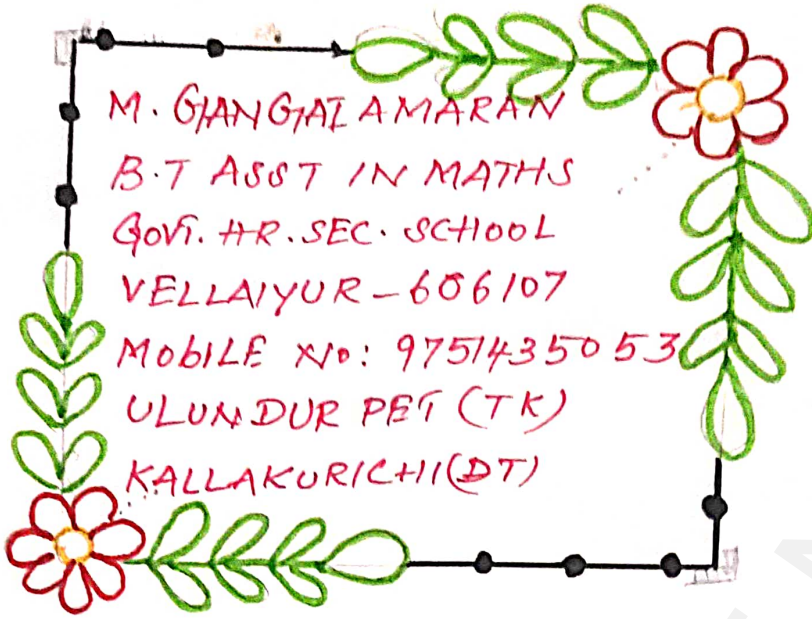 M. GANGAI AMARAN
B.T ASST IN MATHS
GOVT. HR. SEC. SCHOOL
VELLAIYUR - 606107
MOBILE NO: 9751435053
ULUNDUR PET (TK)
KALLAKURICHI (DT)